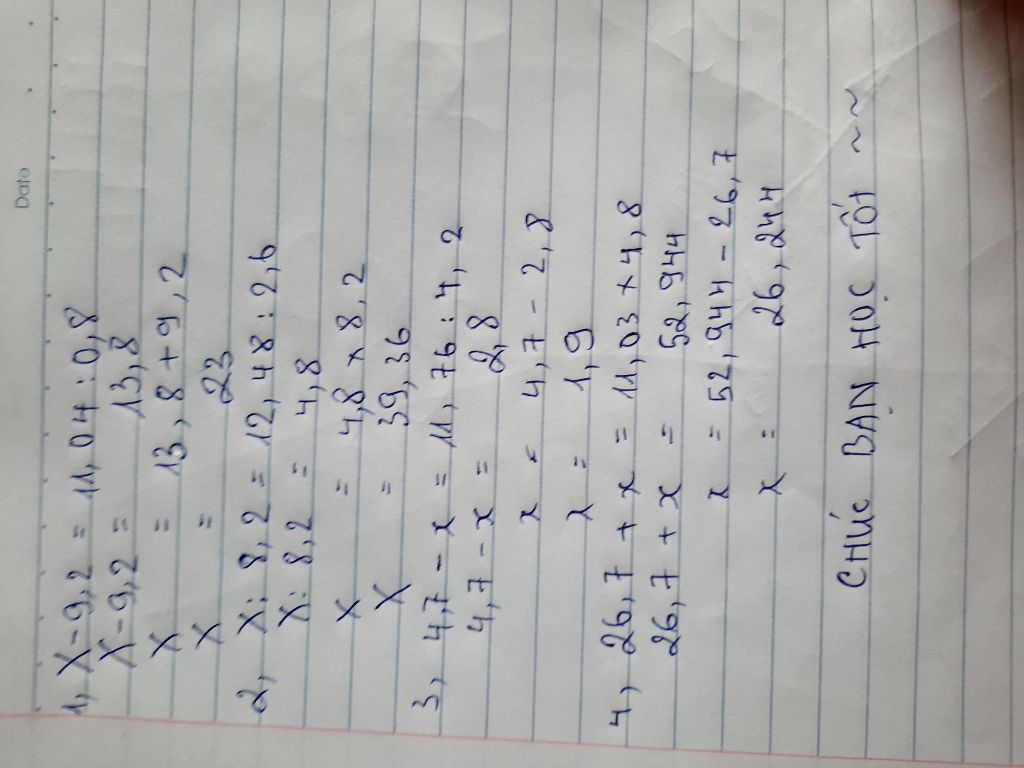 Date
1, X - 9,2 = 11,04 : 0,8
X - 9,2 = 13,8
X = 13,8 + 9,2
X = 23
2, X : 8,2 = 12,48 : 2,6
X : 8,2 = 4,8
X = 4,8 x 8,2
X = 39,36
3, 4,7 - x = 11,76 : 4,2
4,7 - x = 2,8
x = 4,7 - 2,8
x = 1,9
4, 26,7 + x = 11,03 x 4,8
26,7 + x = 52,944
x = 52,944 - 26,7
x = 26,244
CHÚC BẠN HỌC TỐT ~~